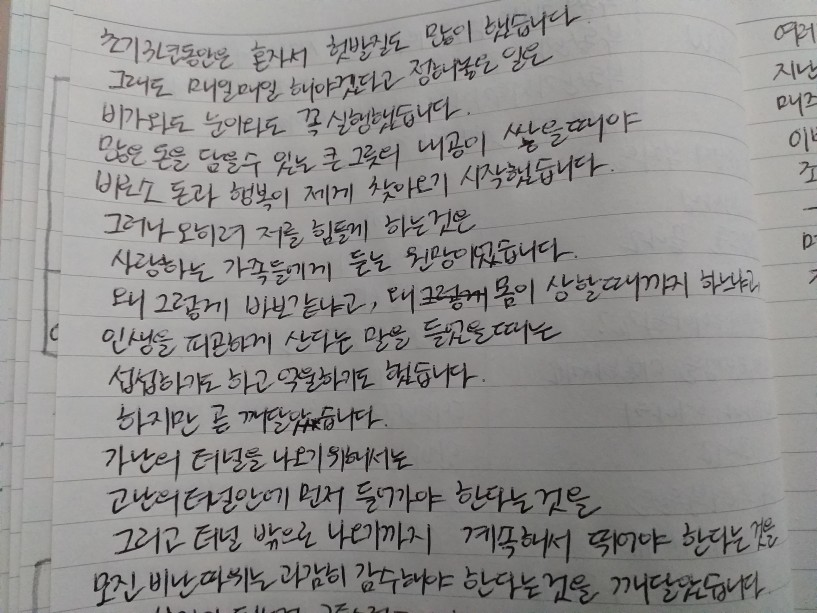 초기 3년동안은 혼자서 헛발질도 많이 했습니다.
그래도 매일매일 해야겠다고 정해놓은 일은
비가와도 눈이와도 꼭 실행했습니다.
많은 돈을 담을수 있는 큰 그릇의 내공이 쌓을때야
비로소 돈과 행복이 제게 찾아오기 시작했습니다.
그러나 오히려 저를 힘들게 하는것은
사랑하는 가족들에게 듣는 원망이었습니다.
왜 그렇게 바보같냐고, 왜 몸이 상할때까지 하냐고
인생을 피곤하게 산다는 말을 들었을때는
섭섭하기도 하고 억울하기도 했습니다.
하지만 곧 깨달았습니다.
가난의 터널을 나오기위해서는
고난의터널안에 먼저 들어가야 한다는것을
그리고 터널 밖으로 나오기까지 계속해서 뛰어야 한다는것을
모진 비난따위는 과감히 감수해야 한다는것을 깨달았습니다.
여러
지난
매주
이번